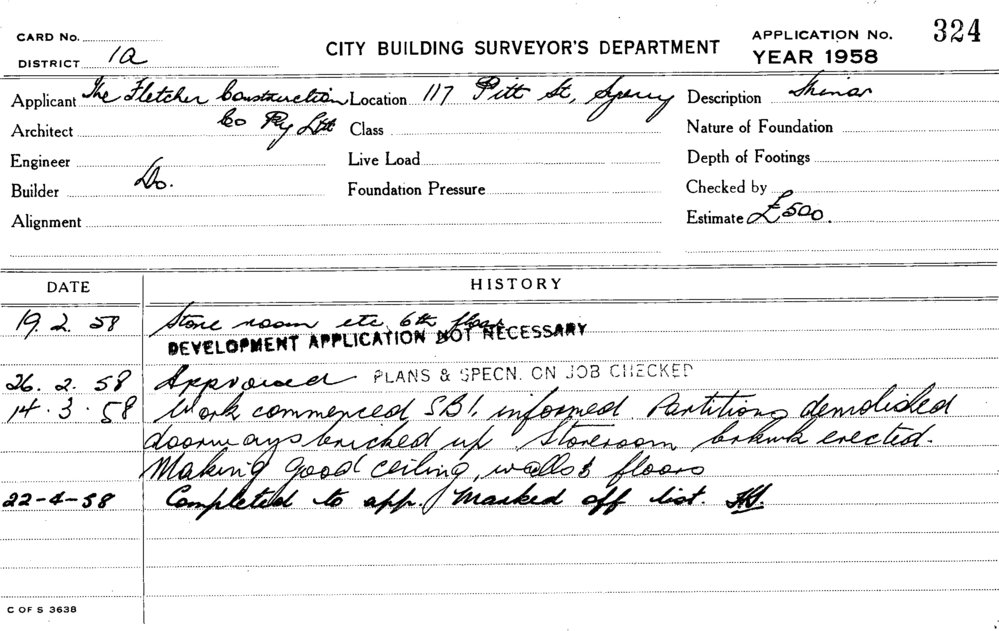 CARD No.
DISTRICT 1a
CITY BUILDING SURVEYOR'S DEPARTMENT
APPLICATION No. 324
YEAR 1958
Applicant The Fletcher Construction Co Pty Ltd
Location 117 Pitt St, Sydney
Description Minor
Architect
Class
Nature of Foundation
Engineer
Live Load
Depth of Footings
Builder Do.
Foundation Pressure
Checked by
Alignment
Estimate £500.
DATE HISTORY
19.2.58 Store room etc, 6th floor
DEVELOPMENT APPLICATION NOT NECESSARY
26.2.58 Approved PLANS & SPECN. ON JOB CHECKED
14.3.58 Work commenced SBI. informed. Partitions demolished
doorways bricked up Storeroom brkwk erected.
Making good ceiling, walls & floors
22-4-58 Completed to app. Marked off list.
C OF S 3638